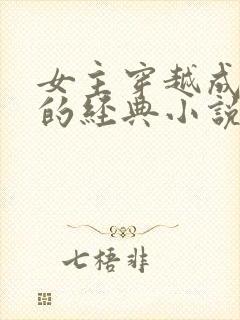 女主穿越成
的經典小說
七梧非